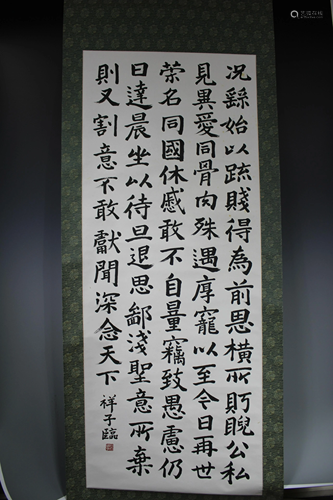 况繇始以疏賤得為前恩横所眄睨公私
見異愛同骨肉殊遇厚寵以至今日再世
榮名同國休慼敢不自量竊致愚慮仍
日達晨坐以待旦退思鄙淺聖意所棄
則又割意不敢獻聞深念天下
祥子臨